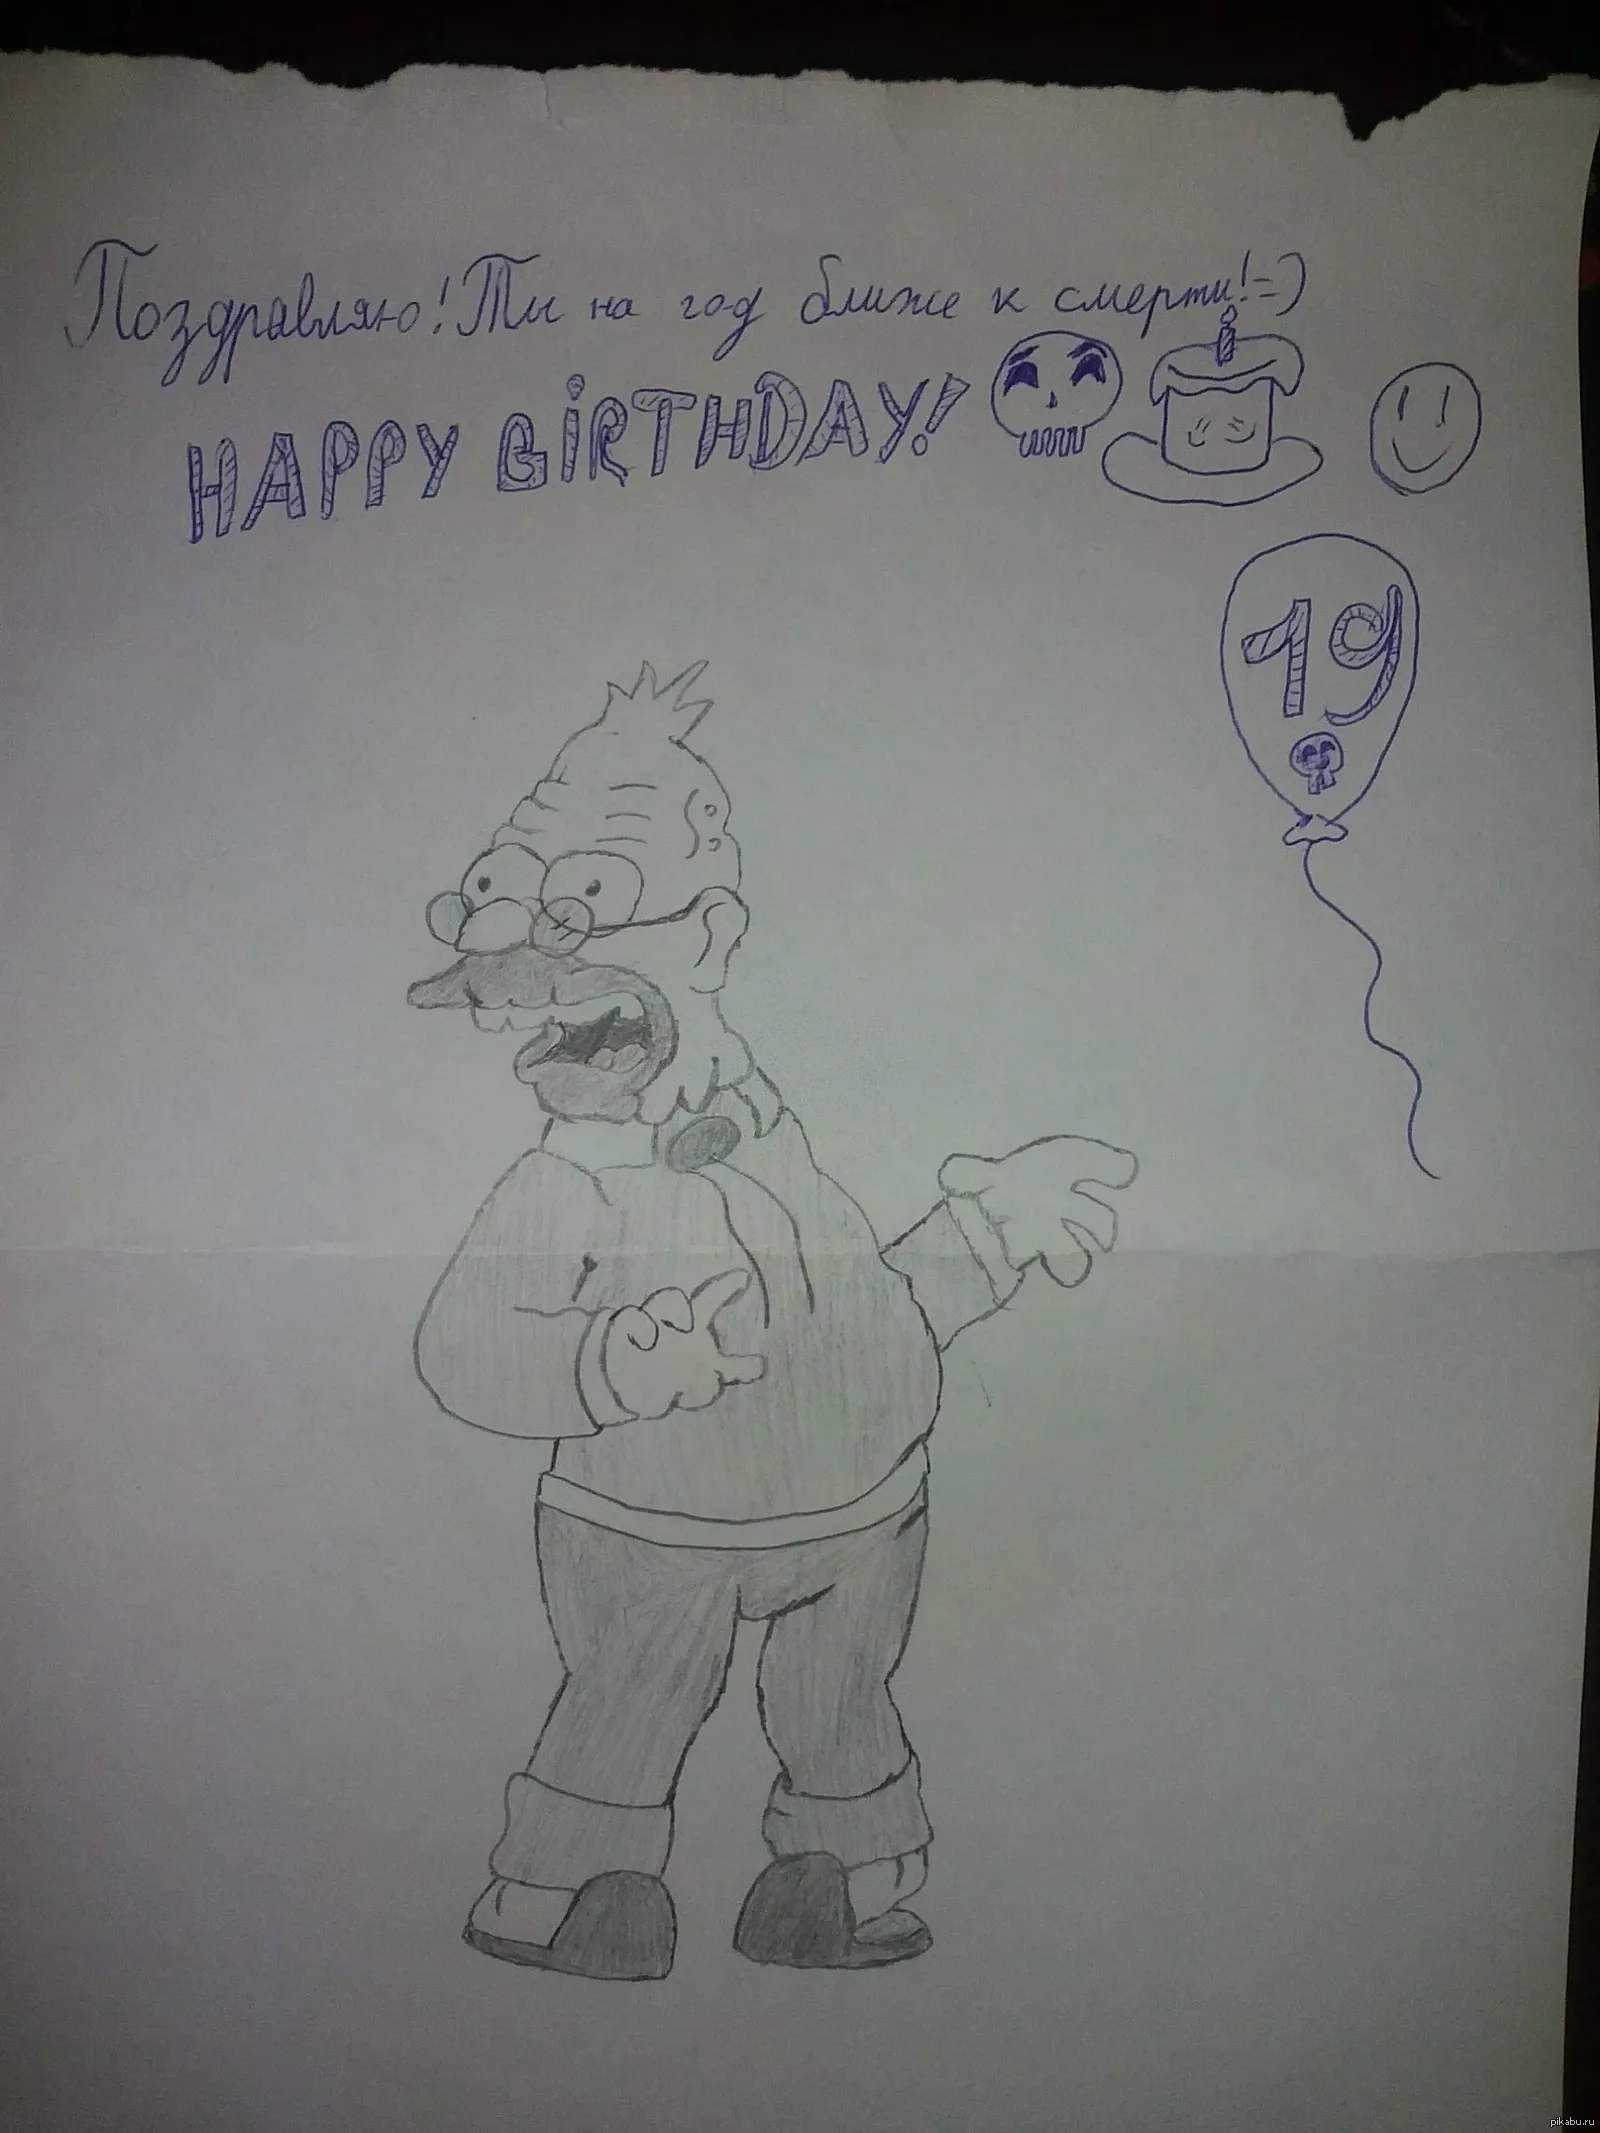 Поздравляю! Ты на год ближе к смерти!=)
HAPPY BiRTHDAY!
19
pikabu.ru